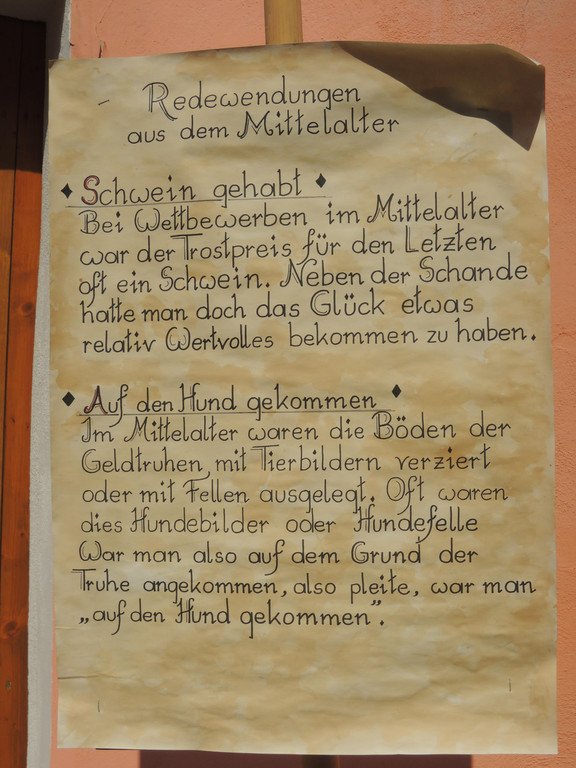 - Redewendungen
aus dem Mittelalter
♦ Schwein gehabt ♦
Bei Wettbewerben im Mittelalter
war der Trostpreis für den Letzten
oft ein Schwein. Neben der Schande
hatte man doch das Glück etwas
relativ Wertvolles bekommen zu haben.
♦ Auf den Hund gekommen ♦
Im Mittelalter waren die Böden der
Geldtruhen, mit Tierbildern verziert
oder mit Fellen ausgelegt. Oft waren
dies Hundebilder oder Hundefelle
War man also auf dem Grund der
Truhe angekommen, also pleite, war man
„auf den Hund gekommen".